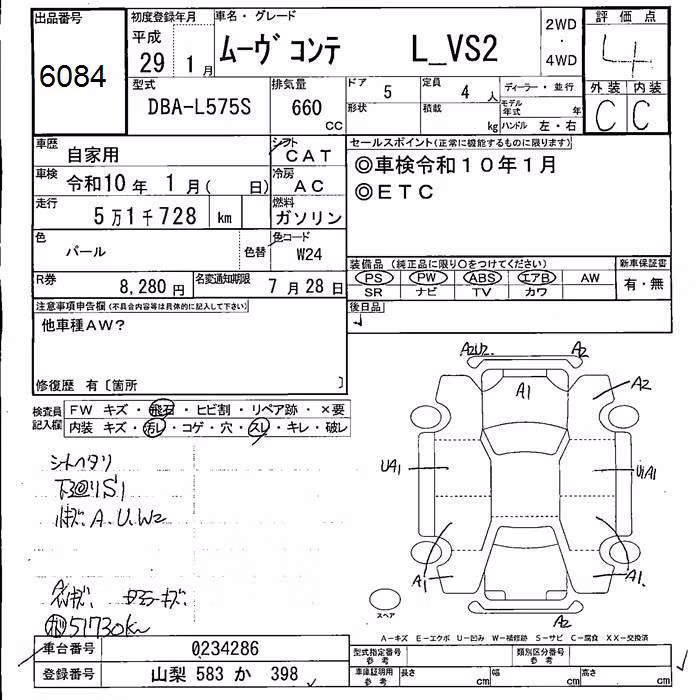 出品番号
6084
初度登録年月
平成
29 1月
車名・グレード
ムーヴ コンテ L_VS2
2WD
・
4WD
評価点
4
外装 内装
C C
型式
DBA-L575S
排気量
660
CC
ドア 5
形状
定員 4 人
積載 kg
ディーラー・並行
モデル年式 年
ハンドル 左・右
車歴 自家用
シフト CAT
車検 令和10年 1月( 日)
冷房 AC
走行 5万1千728 km
燃料 ガソリン
色 パール
色替
色コード W24
R券 8,280円
名変通知期限 7月28日
セールスポイント(正常に機能するものに限ります)
◎車検令和10年1月
◎ETC
装備品 (純正品に限り○をつけてください)
PS PW ABS エアB AW
SR ナビ TV カワ
新車保証書
有・無
後日品
注意事項申告欄(不具合内容等は具体的に記入して下さい)
他車種AW?
修復歴 有〔箇所 〕
検査員記入欄
FW キズ・飛石・ヒビ割・リペア跡・×要
内装 キズ・汚レ・コゲ・穴・スレ・キレ・破レ
シートヘタリ
A.U.W2
51730km
A2U2. A2
A1
A2
UA1
U1A1
A1
A1.
A2
スペア
A—キズ E—エクボ U—凹み W—補修跡 S—サビ C—腐食 XX—交換済
車台番号 0234286
登録番号 山梨 583 か 398
型式指定番号 参考
類別区分番号 参考
車庫証明用 参考
長さ cm 幅 cm 高さ cm